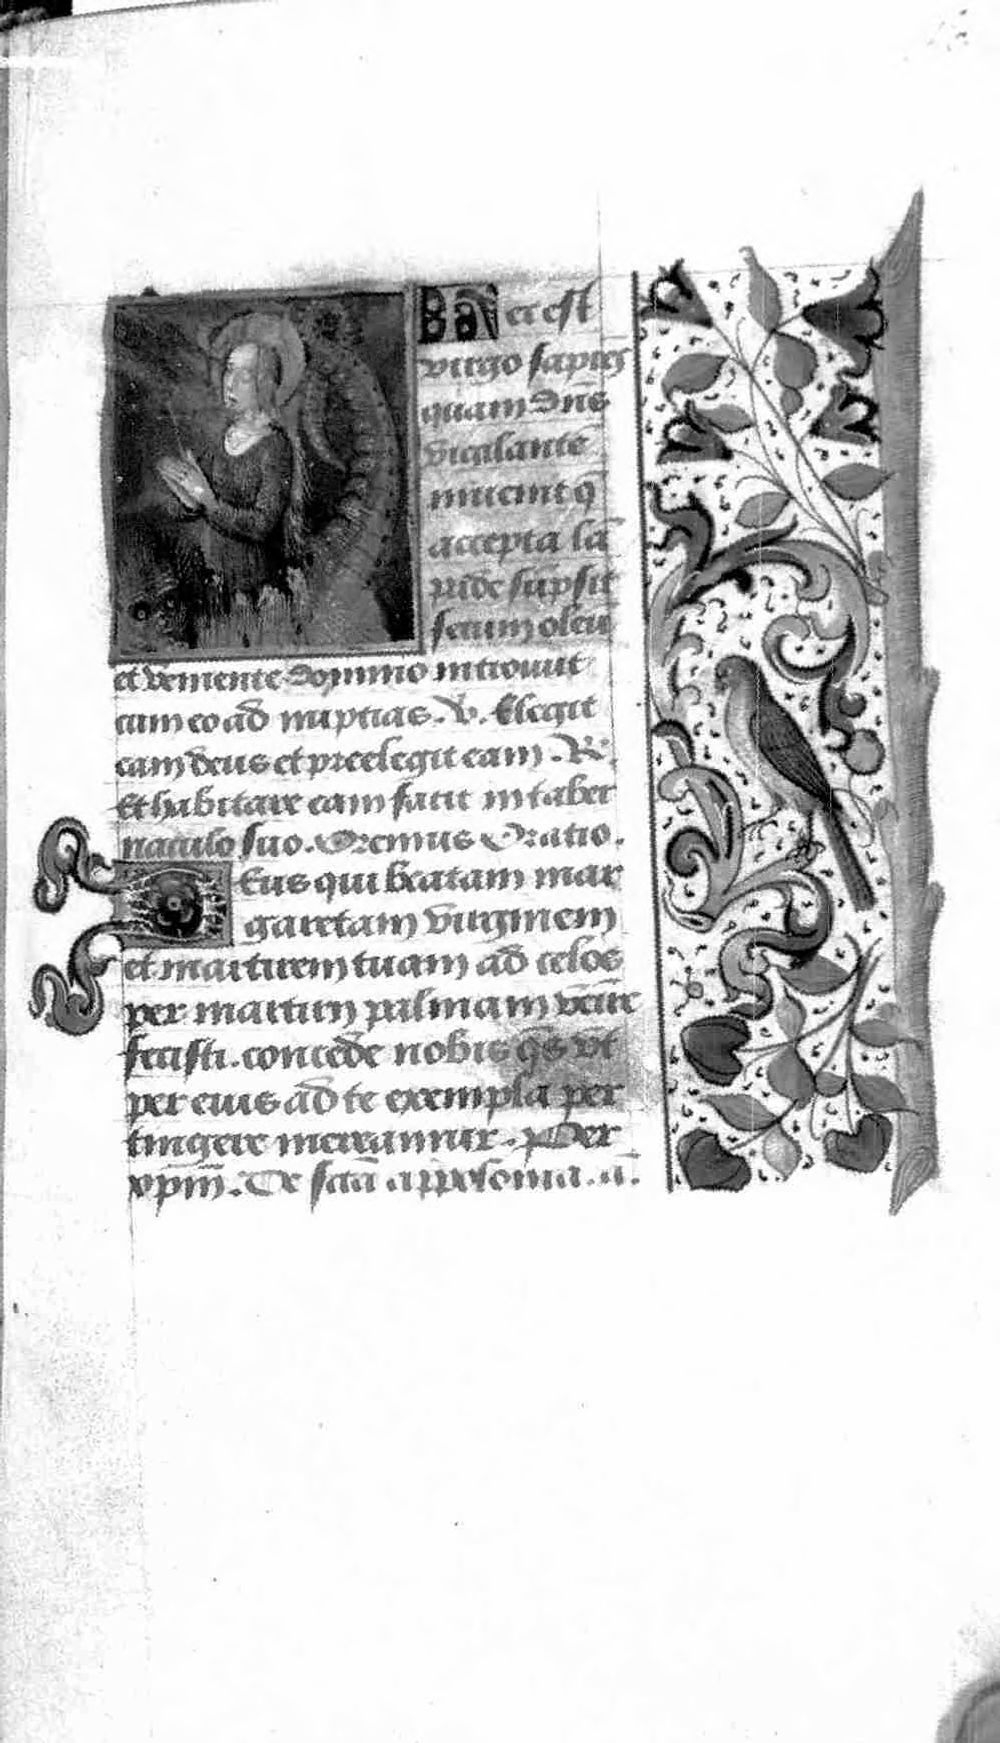 Haec est
virgo sapiēs
quam dn̄s
vigilante
invenit q̄
accepta lā
pade sūpsit
secum oleū
et veniente domino introivit
cum eo ad nuptias. V. Elegit
eam deus et preelegit eam. R.
Et habitare eam facit in taber
naculo suo. Oremus Oratio.
Deus qui beatam mar
garetam virginem
et martirem tuam ad celos
per martirij palmam venire
fecisti. concede nobis q̄s vt
per eius ad te exempla per
tingere mereamur. Per
xpm̄. De sctā appolonia. ā.